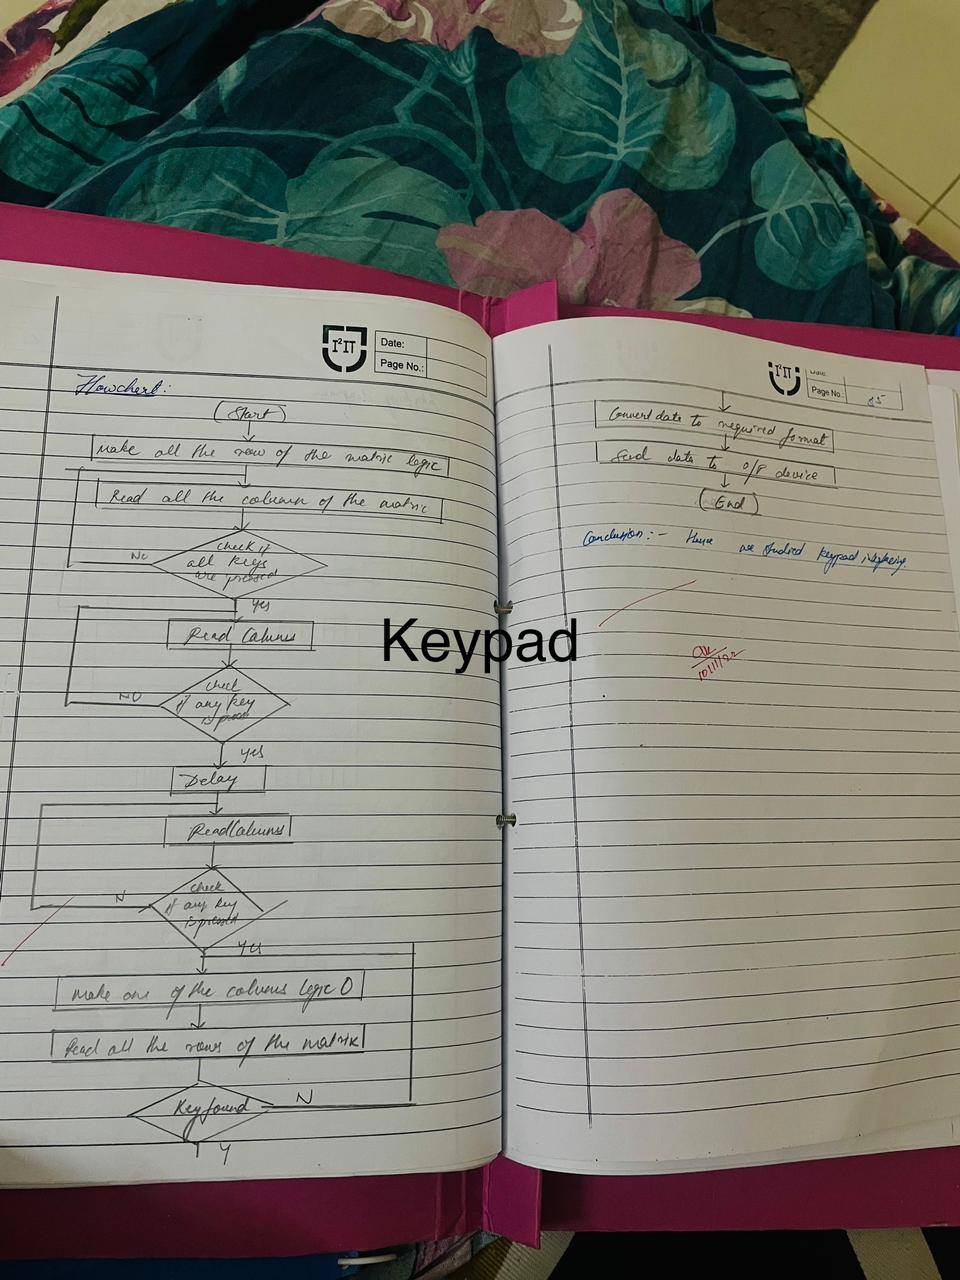 I²IT
Date:
Page No.:
Flowchart:
Start
Make all the row of the matrix logic
Read all the column of the matric
check if
all keys
are pressed
No
Yes
Read Columns
check
if any key
is pressed
NO
yes
Delay
Read Columns
check
if any key
is pressed
N
Yes
Make one of the columns logic 0
Read all the rows of the matrix
Key found
N
Y
Keypad
I²IT
Date:
Page No.: 85
Convert data to required format
Send data to O/P device
(End)
Conclusion:- Hence we studied keypad interfacing.
10/11/22